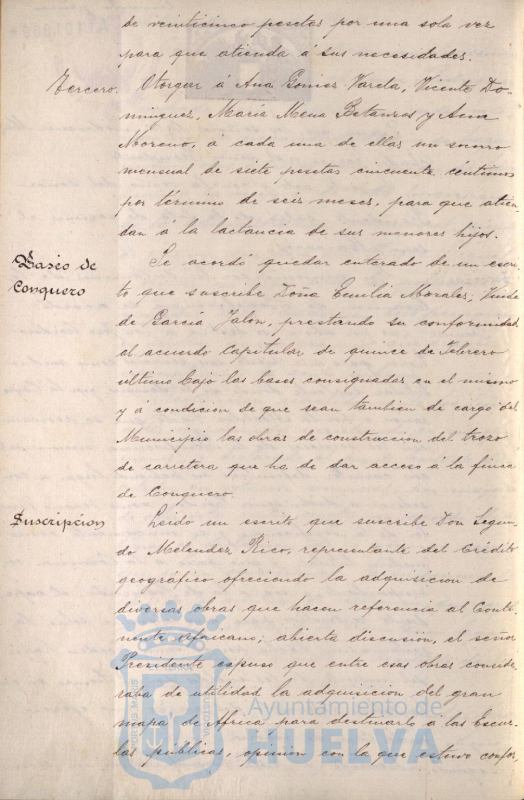 de veinticinco pesetas por una sola vez
para que atienda á sus necesidades.
Tercero. Otorgar á Ana Gomez Varela, Vicenta Do-
minguez, María Mena Betanzos y Ana
Moreno, á cada una de ellas un socorro
mensual de siete pesetas cincuenta céntimos
por término de seis meses, para que atien-
dan á la lactancia de sus menores hijos.
Paseo de
Conquero
Se acordó quedar enterado de un escri-
to que suscribe Doña Emilia Morales, Viuda
de García Jalon, prestando su conformidad
al acuerdo Capitular de quince de Febrero
último bajo las bases consignadas en el mismo
y á condicion de que sean tambien de cargo del
Municipio las obras de construccion del trozo
de carretera que ha de dar acceso á la finca
de Conquero.
Suscripcion
Leido un escrito que suscribe Don Segun-
do Melendez Rico, representante del Crédito
geográfico ofreciendo la adquisicion de
diversas obras que hacen referencia al Conti-
nente africano; abierta discusion, el señor
Presidente espuso que entre esas obras conside-
raba de utilidad la adquisicion del gran
mapa de Africa para destinarlo á las Escue-
las públicas, opinion con la que estuvo confor,
Ayuntamiento de
HUELVA